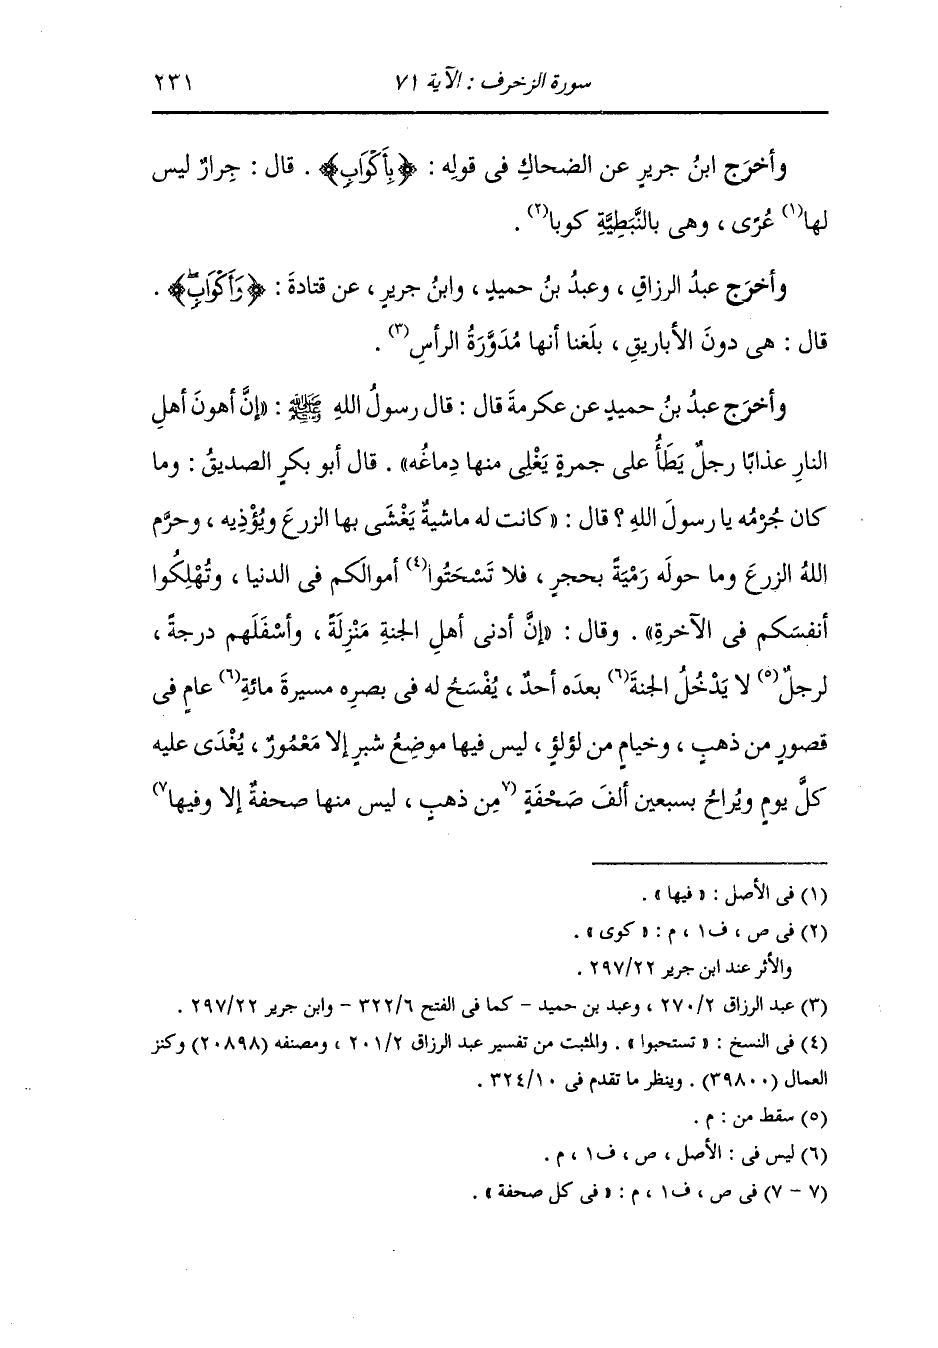 سورة الزخرف : الآية ٧١ ٢٣١
وأخرَج ابنُ جريرٍ عن الضحاكِ فى قولِه : ﴿بِأَكْوَابٍ﴾ . قال : جِرارٌ ليس
لها(١) عُرًى ، وهى بالنَّبَطِيَّةِ كوبا(٢) .
وأخرَج عبدُ الرزاقِ ، وعبدُ بنُ حميدٍ ، وابنُ جريرٍ ، عن قتادةَ : ﴿وَأَكْوَابٍۖ﴾ .
قال : هى دونَ الأباريقِ ، بلَغنا أنها مُدَوَّرَةُ الرأسِ(٣) .
وأخرَج عبدُ بنُ حميدٍ عن عكرمةَ قال : قال رسولُ اللهِ ﷺ : «إنَّ أهونَ أهلِ
النارِ عذابًا رجلٌ يَطَأُ على جمرةٍ يَغْلِى منها دِماغُه» . قال أبو بكرٍ الصديقُ : وما
كان جُرْمُه يا رسولَ اللهِ ؟ قال : «كانت له ماشيةٌ يَغْشَى بها الزرعَ ويُؤْذِيه ، وحرَّم
اللهُ الزرعَ وما حولَه رَمْيَةً بحجرٍ ، فلا تَسْحَتُوا(٤) أموالَكم فى الدنيا ، وتُهْلِكُوا
أنفسَكم فى الآخرةِ» . وقال : «إنَّ أدنى أهلِ الجنةِ مَنْزِلَةً ، وأسْفَلَهم درجةً ،
لرجلٌ(٥) لا يَدْخُلُ الجنةَ(٦) بعدَه أحدٌ ، يُفْسَحُ له فى بصرِه مسيرةَ مائةِ(٦) عامٍ فى
قصورٍ من ذهبٍ ، وخيامٍ من لؤلؤٍ ، ليس فيها موضِعُ شبرٍ إلا مَعْمُورٌ ، يُغْدَى عليه
كلَّ يومٍ ويُراحُ بسبعين ألفَ صَحْفَةٍ (٧مِن ذهبٍ ، ليس منها صحفةٌ إلا وفيها٧)
(١) فى الأصل : « فيها » .
(٢) فى ص ، ف١ ، م : « كوى » .
والأثر عند ابن جرير ٢٢/ ٢٩٧ .
(٣) عبد الرزاق ٢/ ٢٧٠ ، وعبد بن حميد - كما فى الفتح ٦/ ٣٢٢ - وابن جرير ٢٢/ ٢٩٧ .
(٤) فى النسخ : « تستحبوا » . والمثبت من تفسير عبد الرزاق ٢/ ٢٠١ ، ومصنفه (٢٠٨٩٨) وكنز
العمال (٣٩٨٠٠) . وينظر ما تقدم فى ١٠/ ٣٢٤ .
(٥) سقط من : م .
(٦) ليس فى : الأصل ، ص ، ف١ ، م .
(٧ - ٧) فى ص ، ف١ ، م : « فى كل صحفة » .